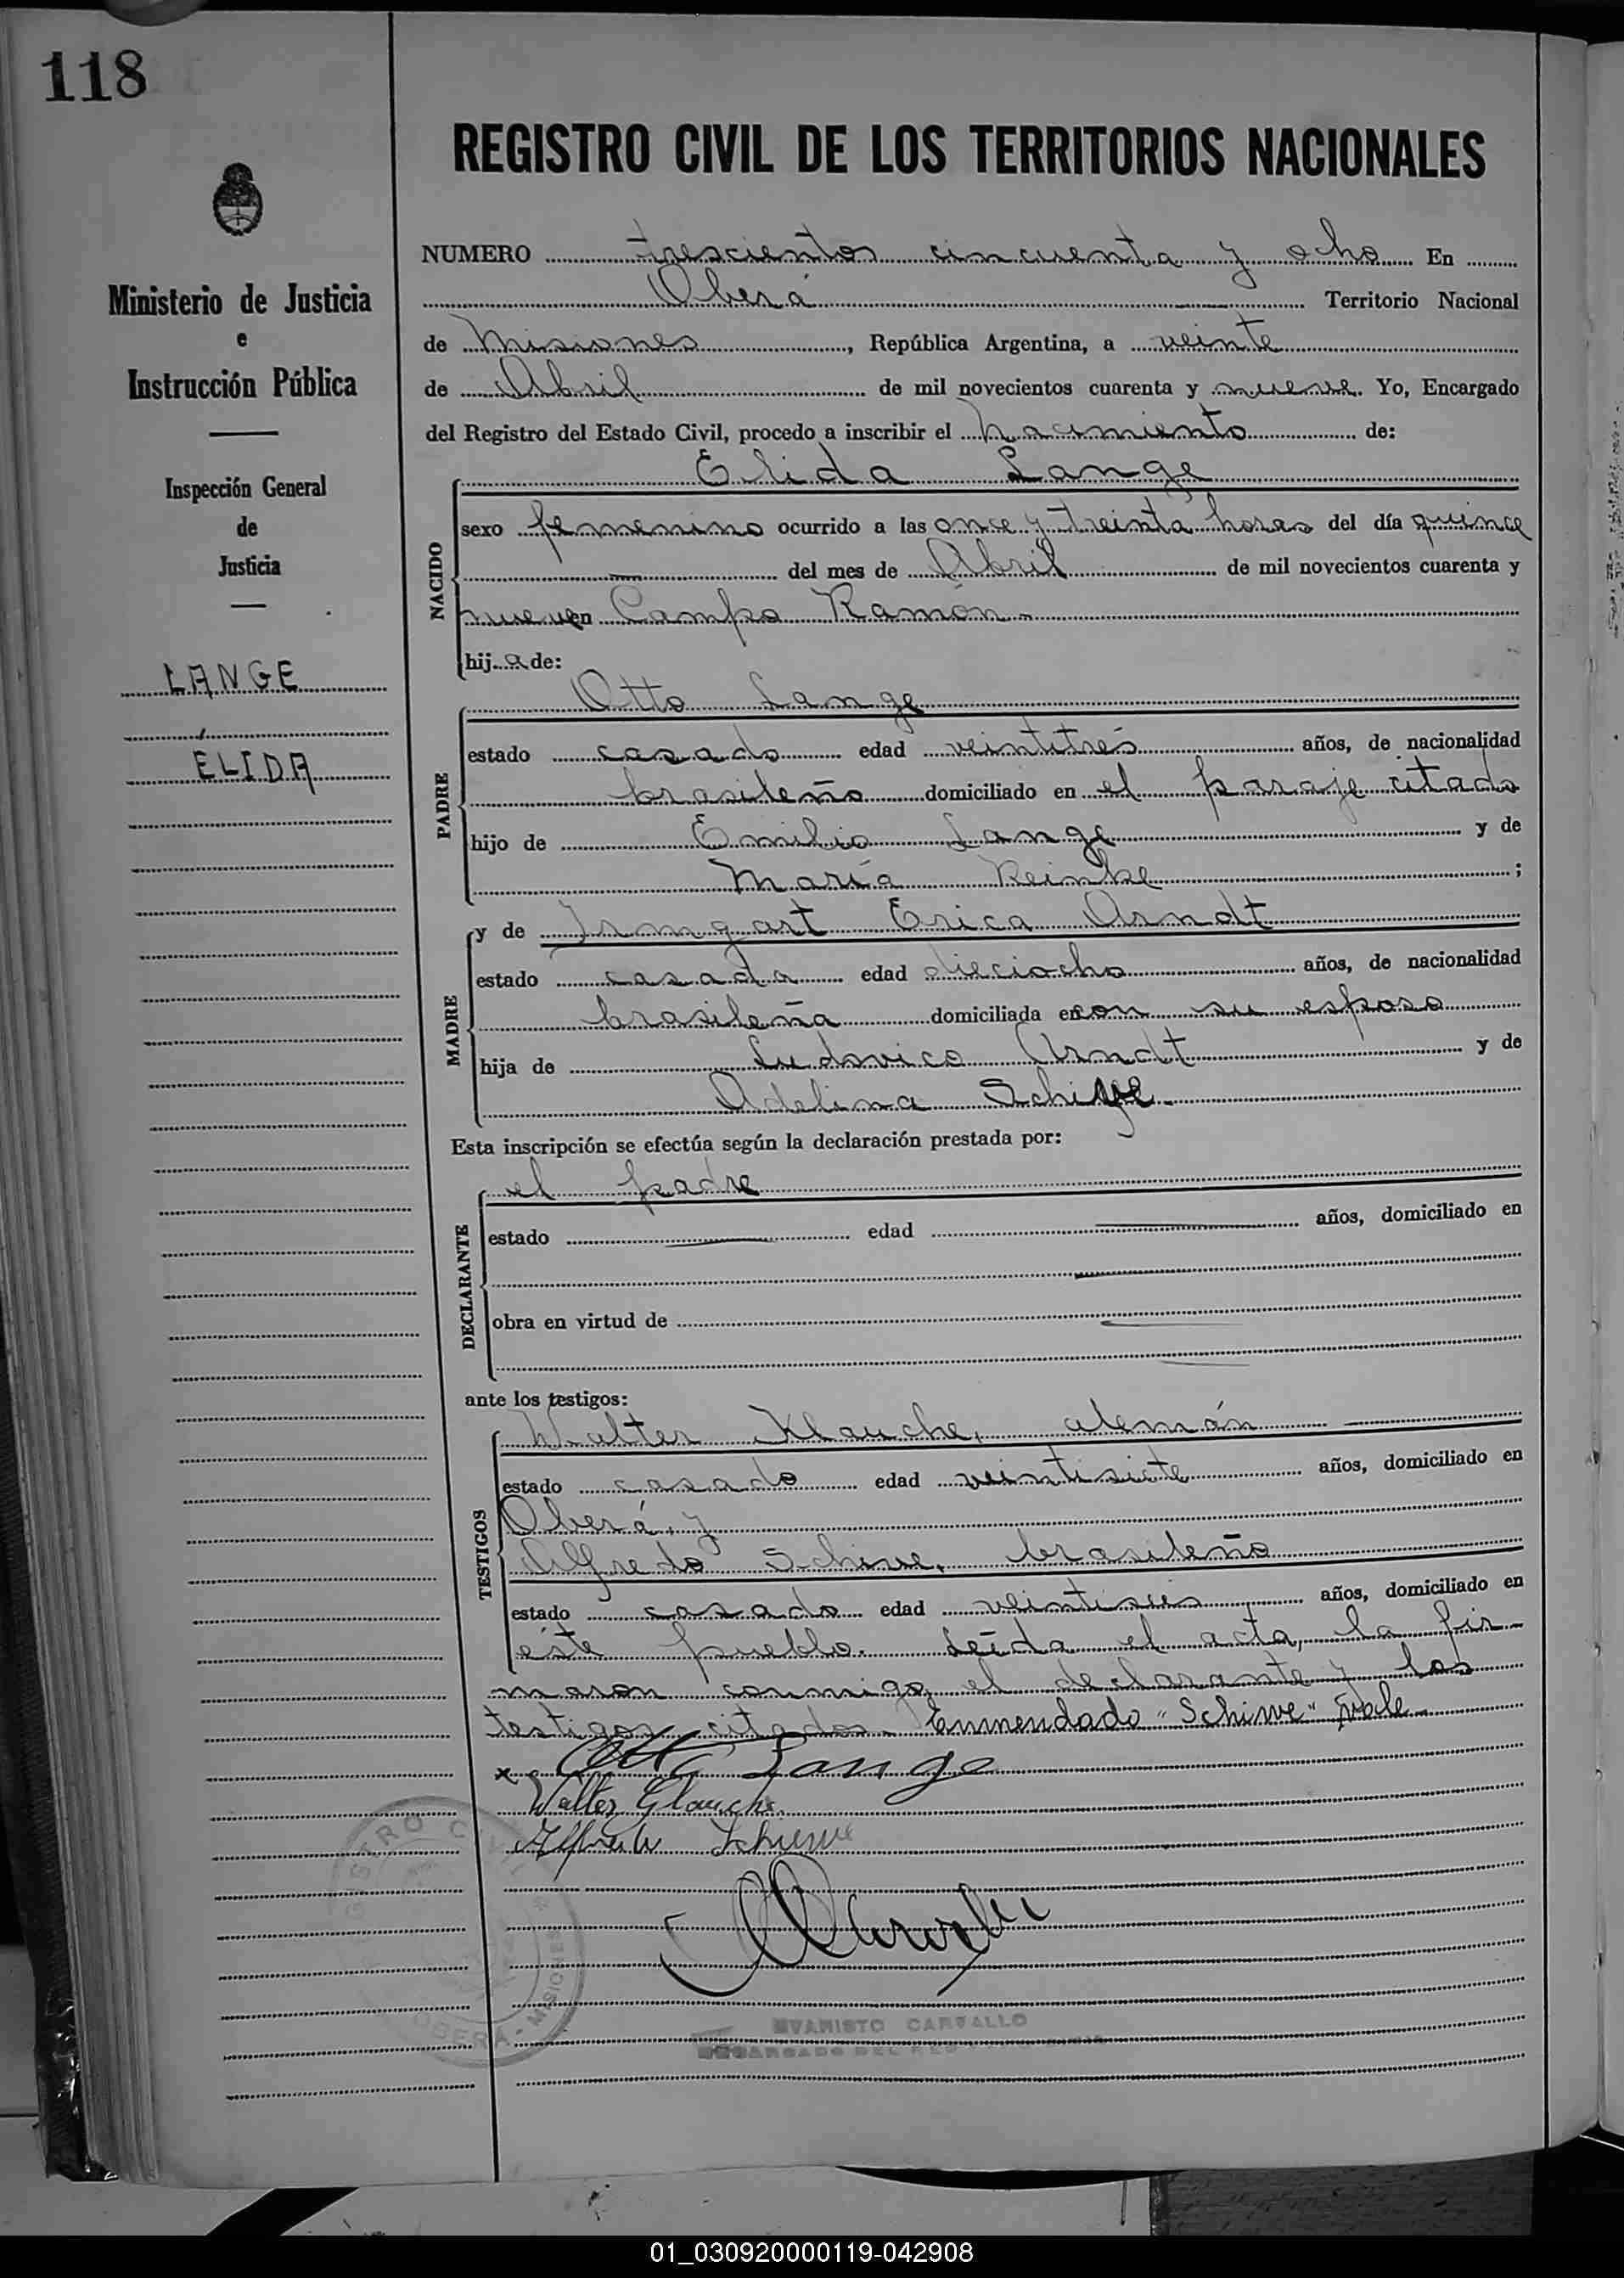 118
REGISTRO CIVIL DE LOS TERRITORIOS NACIONALES
Ministerio de Justicia
e
Instrucción Pública
Inspección General
de
Justicia
LANGE
ÉLIDA
NUMERO trescientos cincuenta y ocho En
Oberá Territorio Nacional
de Misiones, República Argentina, a veinte
de Abril de mil novecientos cuarenta y nueve. Yo, Encargado
del Registro del Estado Civil, procedo a inscribir el nacimiento de:
Elida Lange
NACIDO
sexo femenino ocurrido a las once y treinta horas del día quince
del mes de Abril de mil novecientos cuarenta y
nueve en Campo Ramón.
hija de:
Otto Lange
PADRE
estado casado edad veintitrés años, de nacionalidad
brasileño domiciliado en el paraje citado
hijo de Emilio Lange y de
María Reinke;
y de Irmgart Erica Arndt
MADRE
estado casada edad dieciocho años, de nacionalidad
brasileña domiciliada en con su esposo
hija de Ludovico Arndt y de
Adelina
Esta inscripción se efectúa según la declaración prestada por:
el padre
DECLARANTE
estado edad años, domiciliado en
obra en virtud de
ante los testigos:
Walter Klauche, alemán
TESTIGOS
estado casado edad veintisiete años, domiciliado en
Oberá, y
Alfredo Schiwe, brasileño
estado casado edad veintiseis años, domiciliado en
éste pueblo. Leída el acta, la fir-
maron conmigo, el declarante y los
testigos citados. Enmendado "Schirwe" Vale
x Otto Lange
Walter Glauche
Alfredo Schiewe
REGISTRO CIVIL
OBERA - MISIONES
EVARISTO CARVALLO
ENCARGADO DEL
01_030920000119-042908